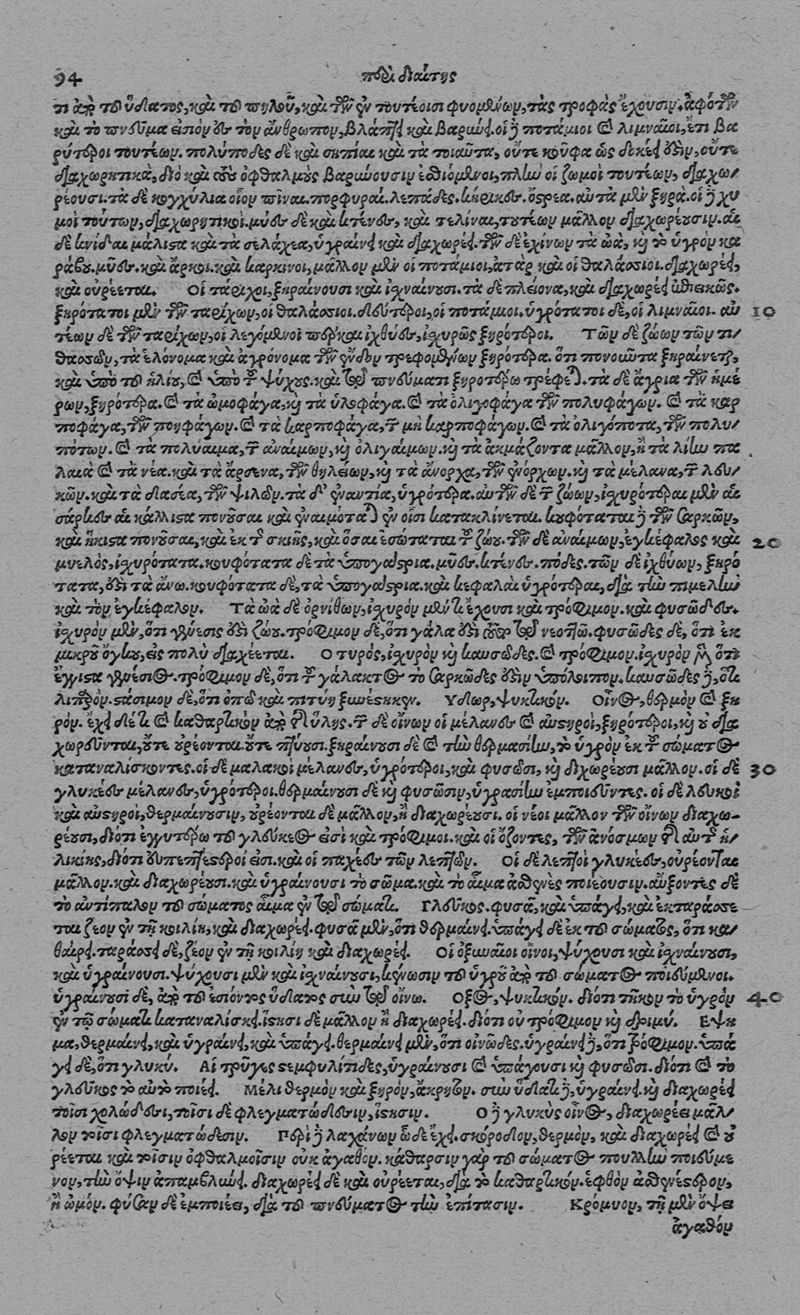 94 περὶ διαίτης
τι ἀπὸ τοῦ ὕδατος, καὶ τοῦ πηλοῦ, καὶ τῶν ἐν τουτέοισι φυομένων, τὰς τροφὰς ἔχουσιν. ἀφ' ὧν
καὶ τὸ πνεῦμα ἐσιὸν ἐς τὸν ἄνθρωπον, βλάπτει καὶ βαρύνει. οἱ δὲ ποτάμιοι καὶ λιμναῖοι, ἔτι βα
ρύτεροι τουτέων. πολύποδες δὲ καὶ σηπίαι καὶ τὰ τοιαῦτα, οὔτε κοῦφα ὡς δοκέει ἐστὶν, οὔτε
διαχωρητικὰ, διὸ καὶ τοὺς ὀφθαλμοὺς βαρύνουσιν ἐσθιόμενοι, πλὴν οἱ ζωμοὶ τουτέων, διαχω/
ρέουσι. τὰ δὲ κογχύλια οἷον πίναι. πορφυραί. λεπάδες. κήρυκες. ὄστρεα. αὐτὰ μὲν ξηρά. οἱ δὲ χυ
μοὶ τούτων, διαχωρητικοί. μύες δὲ καὶ κτένες, καὶ τελίναι, τούτεων μᾶλλον διαχωρέουσιν. αἱ
δὲ κνίδαι μάλιστα καὶ τὰ σελάχεα, ὑγραίνει καὶ διαχωρέει. τῶν δὲ ἐχίνων τὰ ὠὰ, καὶ τὸ ὑγρὸν κα
ράβου. μῦες. καὶ ἄρκοι. καὶ καρκίνοι, μᾶλλον μὲν οἱ ποτάμιοι, ἀτὰρ καὶ οἱ θαλάσσιοι. διαχωρέει,
καὶ οὐρέεται. Οἱ τάριχοι, ξηραίνουσι καὶ ἰσχναίνουσι. τὰ δὲ πλείονα, καὶ διαχωρέει ἐπιεικῶς.
ξηρότατοι μὲν τῶν ταρίχων, οἱ θαλάσσιοι. δεύτεροι, οἱ ποτάμιοι. ὑγρότατοι δὲ, οἱ λιμναῖοι. αὐ 10
τέων δὲ τῶν ταρίχων, οἱ λεγόμενοι πέρκαι ἰχθύες, ἰσχυρῶς ξηρότεροι. Τῶν δὲ ζώων τῶν τι/
θασσῶν, τὰ ὑλονόμα καὶ ἀγρόνομα τῶν ἔνδον τρεφομένων ξηρότερα. ὅτι πονοῦντα ξηραίνεται,
καὶ ὑπὸ τοῦ ἡλίου, καὶ ὑπὸ τοῦ ψύχους. καὶ τῷ πνεύματι ξηροτέρῳ τρέφεται. τὰ δὲ ἄγρια τῶν ἡμέ
ρων, ξηρότερα. καὶ τὰ ὠμοφάγα, καὶ τὰ ὑλεφάγα. καὶ τὰ ὀλιγοφάγα τῶν πολυφάγων. καὶ τὰ καρ
ποφάγα, τῶν ποηφάγων. καὶ τὰ καρποφάγα, τῶν μὴ καρποφάγων. καὶ τὰ ὀλιγόποτα, τῶν πολυ/
πότων. καὶ τὰ πολύαιμα, τῶν ἀναίμων, καὶ ὀλιγαίμων. καὶ τὰ ἀκμάζοντα μᾶλλον, ἢ τὰ λίην πα
λαιὰ καὶ τὰ νέα. καὶ τὰ ἄρσενα, τῶν θηλείων, καὶ τὰ ἄνορχα, τῶν ἐνόρχων. καὶ τὰ μέλανα, τῶν λευ/
κῶν. καὶ τὰ δασέα, τῶν ψιλῶν. τὰ δ' ἐναντία, ὑγρότερα. αὐτῶν δὲ τῶν ζώων, ἰσχυρόταται μὲν αἱ
σάρκες αἱ κάλλιστα πονοῦσαι καὶ ἐναιμόταται ἐν οἷσι κατακλίνεται. κουφόταται δὲ τῶν σαρκῶν,
καὶ ἥκιστα πονοῦσαι, καὶ ἐκ τῆς σκιῆς, καὶ ὅσαι ἐσώταται τοῦ ζώου. τῶν δὲ ἀναίμων, ἐγκέφαλος καὶ 20
μυελὸς, ἰσχυρότατα. κουφότατα δὲ τὰ ὑπογάστρια. μῦες. κτένες. πόδες. τῶν δὲ ἰχθύων, ξηρό
τατα, ἐστὶ τὰ ἄνω. κουφότατα δὲ, τὰ ὑπογάστρια. καὶ κεφαλαὶ ὑγρότεραι, διὰ τὴν πιμελὴν
καὶ τὸν ἐγκέφαλον. Τὰ ὠὰ δὲ ὀρνίθων, ἰσχυρὸν μέν τι ἔχουσι καὶ τρόφιμον. καὶ φυσῶδες.
ἰσχυρὸν μὲν, ὅτι γένεσίς ἐστι ζώου. τρόφιμον δὲ, ὅτι γάλα ἐστὶ τοῦτο τῷ νεοττῷ. φυσῶδες δὲ, ὅτι ἐκ
μικροῦ ὄγκου, ἐς πολὺ διαχέεται. Ο τυρὸς, ἰσχυρὸν καὶ καυσῶδες. καὶ τρόφιμον. ἰσχυρὸν μὲν ὅτι
ἔγγιστα γενέσιος. τρόφιμον δὲ, ὅτι τοῦ γάλακτος τὸ σαρκῶδές ἐστιν ὑπόλοιπον. καυσῶδες δὲ, ὅτι
λιπαρόν. στάσιμον δὲ, ὅτι ὀπῷ καὶ πιτύῃ ξυνέστηκεν. Υδωρ, ψυκτικόν. Οἶνος, θερμὸν καὶ ξη
ρόν. ἔχει δέ τι καὶ καθαρτικὸν ἀπὸ τῆς ὕλης. τῶν δὲ οἴνων οἱ μέλανες καὶ αὐστηροὶ, ξηρότεροι, καὶ οὐ δια
χωρεῦνται, οὔτε οὐρέονται. οὔτε πτύουσι. ξηραίνουσι δὲ καὶ τὴν θερμασίην, τὸ ὑγρὸν ἐκ τοῦ σώματος
καταναλίσκοντες. οἱ δὲ μαλακοὶ μέλανες, ὑγρότεροι, καὶ φυσῶσι, καὶ διαχωρέουσι μᾶλλον. οἱ δὲ 30
γλυκέες μέλανες, ὑγρότεροι. θερμαίνουσι δὲ καὶ φυσῶσιν, ὑγρασίην ἐμποιεῦντες. οἱ δὲ λευκοὶ
καὶ αὐστηροὶ, θερμαίνουσιν, οὐρέονται δὲ μᾶλλον, ἢ διαχωρέουσι. οἱ νέοι μᾶλλον τῶν οἴνων διαχω-
ρέουσι, διότι ἐγγυτέρω τοῦ γλεύκεος εἰσὶ καὶ τρόφιμοι. καὶ οἱ ὄζοντες, τῶν ἀνόσμων τῆς αὐτῆς ἡ/
λικίης, διότι εὐπεπτέστεροί εἰσι. καὶ οἱ παχέες τῶν λεπτῶν. Οἱ δὲ λεπτοὶ γλυκέες, οὐρέονται
μᾶλλον. καὶ διαχωρέουσι. καὶ ὑγραίνουσι τὸ σῶμα. καὶ τὸ αἷμα ἀσθενὲς ποιέουσιν. αὔξοντες δὲ
τὸ ἀντίπαλον τοῦ σώματος αἷμα ἐν τῷ σώματι. Γλεῦκος. φυσᾷ, καὶ ὑπάγει, καὶ ἐκταράσσε
ται ζέον ἐν τῇ κοιλίῃ, καὶ διαχωρέει. φυσᾷ μὲν, ὅτι θερμαίνει. ὑπάγει δὲ ἐκ τοῦ σώματος, ὅτι κα/
θαίρει. ταράσσει δὲ, ζέον ἐν τῇ κοιλίῃ καὶ διαχωρέει. Οἱ ὀξωναῖοι οἶνοι, ψύχουσι καὶ ἰσχναίνουσι,
καὶ ὑγραίνουσι. ψύχουσι μὲν καὶ ἰσχναίνουσι, κένωσιν τοῦ ὑγροῦ ἀπὸ τοῦ σώματος ποιεύμενοι.
ὑγραίνουσι δὲ, ἀπὸ τοῦ ἐσιόντος ὕδατος σὺν τῷ οἴνῳ. Οξος, ψυκτικόν. διότι τῆκον τὸ ὑγρὸν 40
ἐν τῷ σώματι καταναλίσκει. ἵστησι δὲ μᾶλλον ἢ διαχωρέει. διότι οὐ τρόφιμον καὶ δριμύ. Εψη
μα, θερμαίνει, καὶ ὑγραίνει, καὶ ὑπάγει. θερμαίνει μὲν, ὅτι οἰνῶδες. ὑγραίνει δὲ, ὅτι τρόφιμον. ὑπά
γει δὲ, ὅτι γλυκύ. Αἱ τρύγες στεμφυλίτιδες, ὑγραίνουσι καὶ ὑπάγουσι καὶ φυσῶσι. διότι καὶ τὸ
γλεῦκος τὸ αὐτὸ ποιέει. Μέλι θερμὸν καὶ ξηρὸν, ἄκρητον. σὺν ὕδατι δὲ, ὑγραίνει. καὶ διαχωρέει
τοῖσι χολώδεσι, τοῖσι δὲ φλεγματώδεσιν, ἵστησιν. Ο δὲ γλυκὺς οἶνος, διαχωρέει μᾶλ/
λον τοῖσι φλεγματώδεσιν. Περὶ δὲ λαχάνων ὧδε ἔχει. σκόροδον, θερμὸν, καὶ διαχωρέει καὶ οὐ
ρέεται καὶ τοῖσιν ὀφθαλμοῖσιν οὐκ ἀγαθόν. κάθαρσιν γὰρ τοῦ σώματος πουλλὴν ποιεύμε
νον, τὴν ὄψιν ἀπαμβλύνει. διαχωρέει δὲ καὶ οὐρέεται, διὰ τὸ καθαρτικόν. ἑφθὸν ἀσθενέστερον,
ἢ ὠμόν. φῦσαν δὲ ἐμποιέει, διὰ τοῦ πνεύματος τὴν ἐπίτασιν. Κρόμυον, τῇ μὲν ὄψει
ἀγαθόν